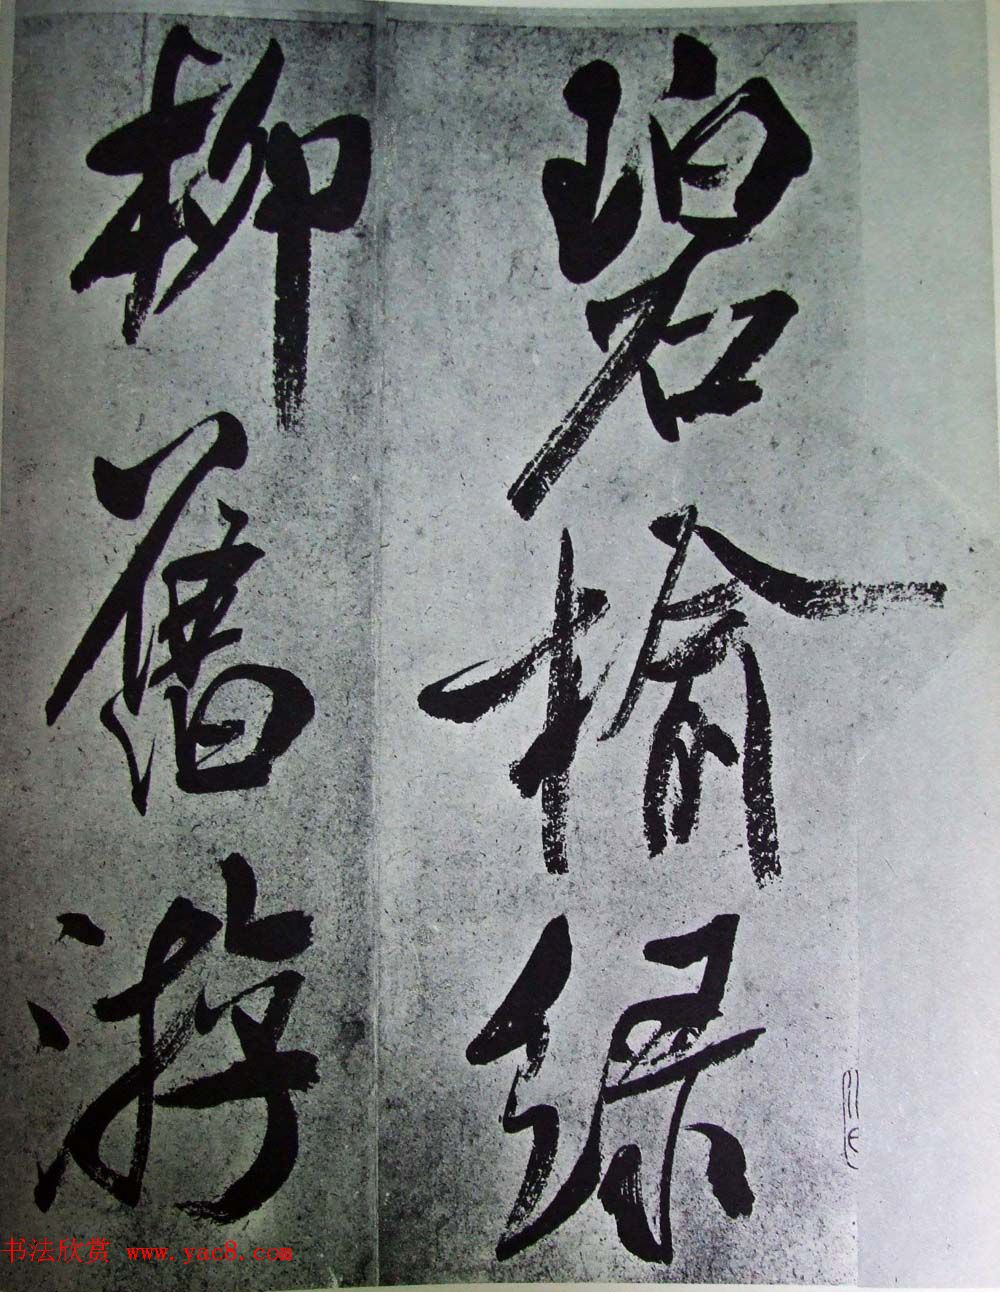 碧榆綠
柳舊游
书法欣赏 www.yac8.com